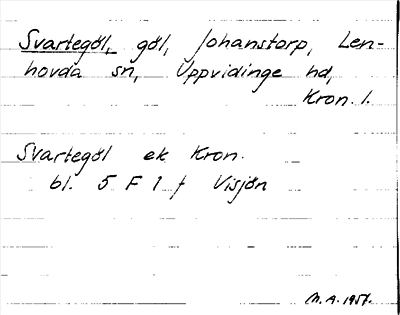 Svartegöl, göl, Johanstorp, Len-
hovda sn, Uppvidinge hd,
Kron. l.
Svartegöl ek Kron.
bl. 5 F 1 f Visjön
M. A. 1957.